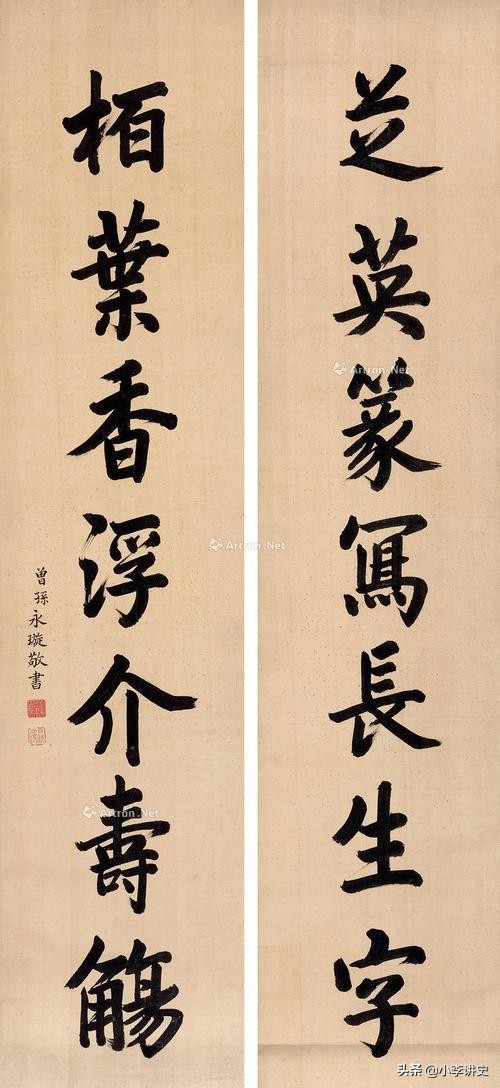 芝英篆寫長生字
栢葉香浮介壽觴
曾孫永璇敬書
Artron.Net
Artron.Net
Artron.Net
头条 @小李讲史